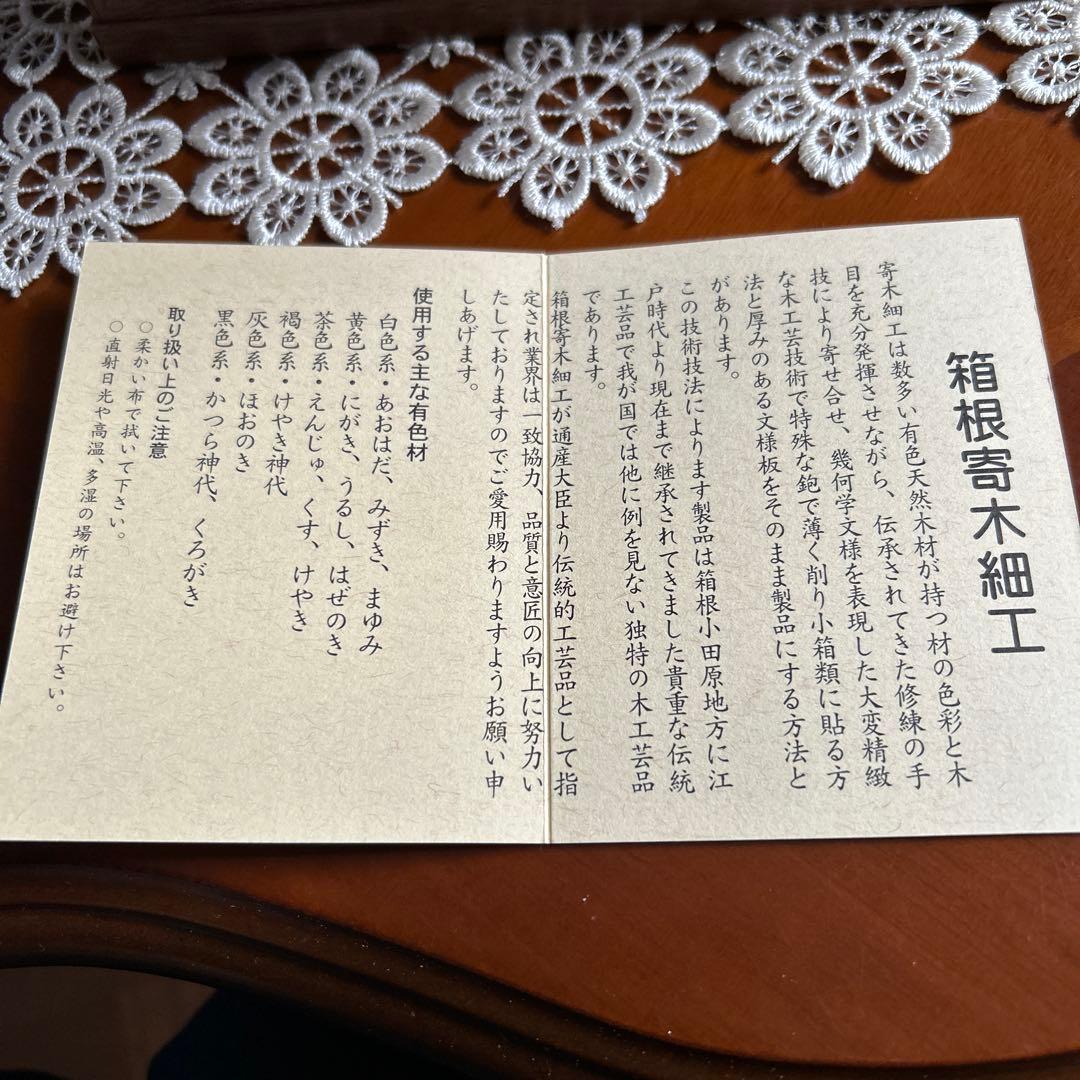 箱根寄木細工
寄木細工は数多い有色天然木材が持つ材の色彩と木
目を充分発揮させながら、伝承されてきた修練の手
技により寄せ合せ、幾何学文様を表現した大変精緻
な木工芸技術で特殊な鉋で薄く削り小箱類に貼る方
法と厚みのある文様板をそのまま製品にする方法と
があります。
この技術技法によります製品は箱根小田原地方に江
戸時代より現在まで継承されてきました貴重な伝統
工芸品で我が国では他に例を見ない独特の木工芸品
であります。
箱根寄木細工が通産大臣より伝統的工芸品として指
定され業界は一致協力、品質と意匠の向上に努力い
たしておりますのでご愛用賜わりますようお願い申
しあげます。
使用する主な有色材
白色系・あおはだ、みずき、まゆみ
黄色系・にがき、うるし、はぜのき
茶色系・えんじゅ、くす、けやき
褐色系・けやき神代
灰色系・ほおのき
黒色系・かつら神代、くろがき
取り扱い上のご注意
○柔かい布で拭いて下さい。
○直射日光や高温、多湿の場所はお避け下さい。